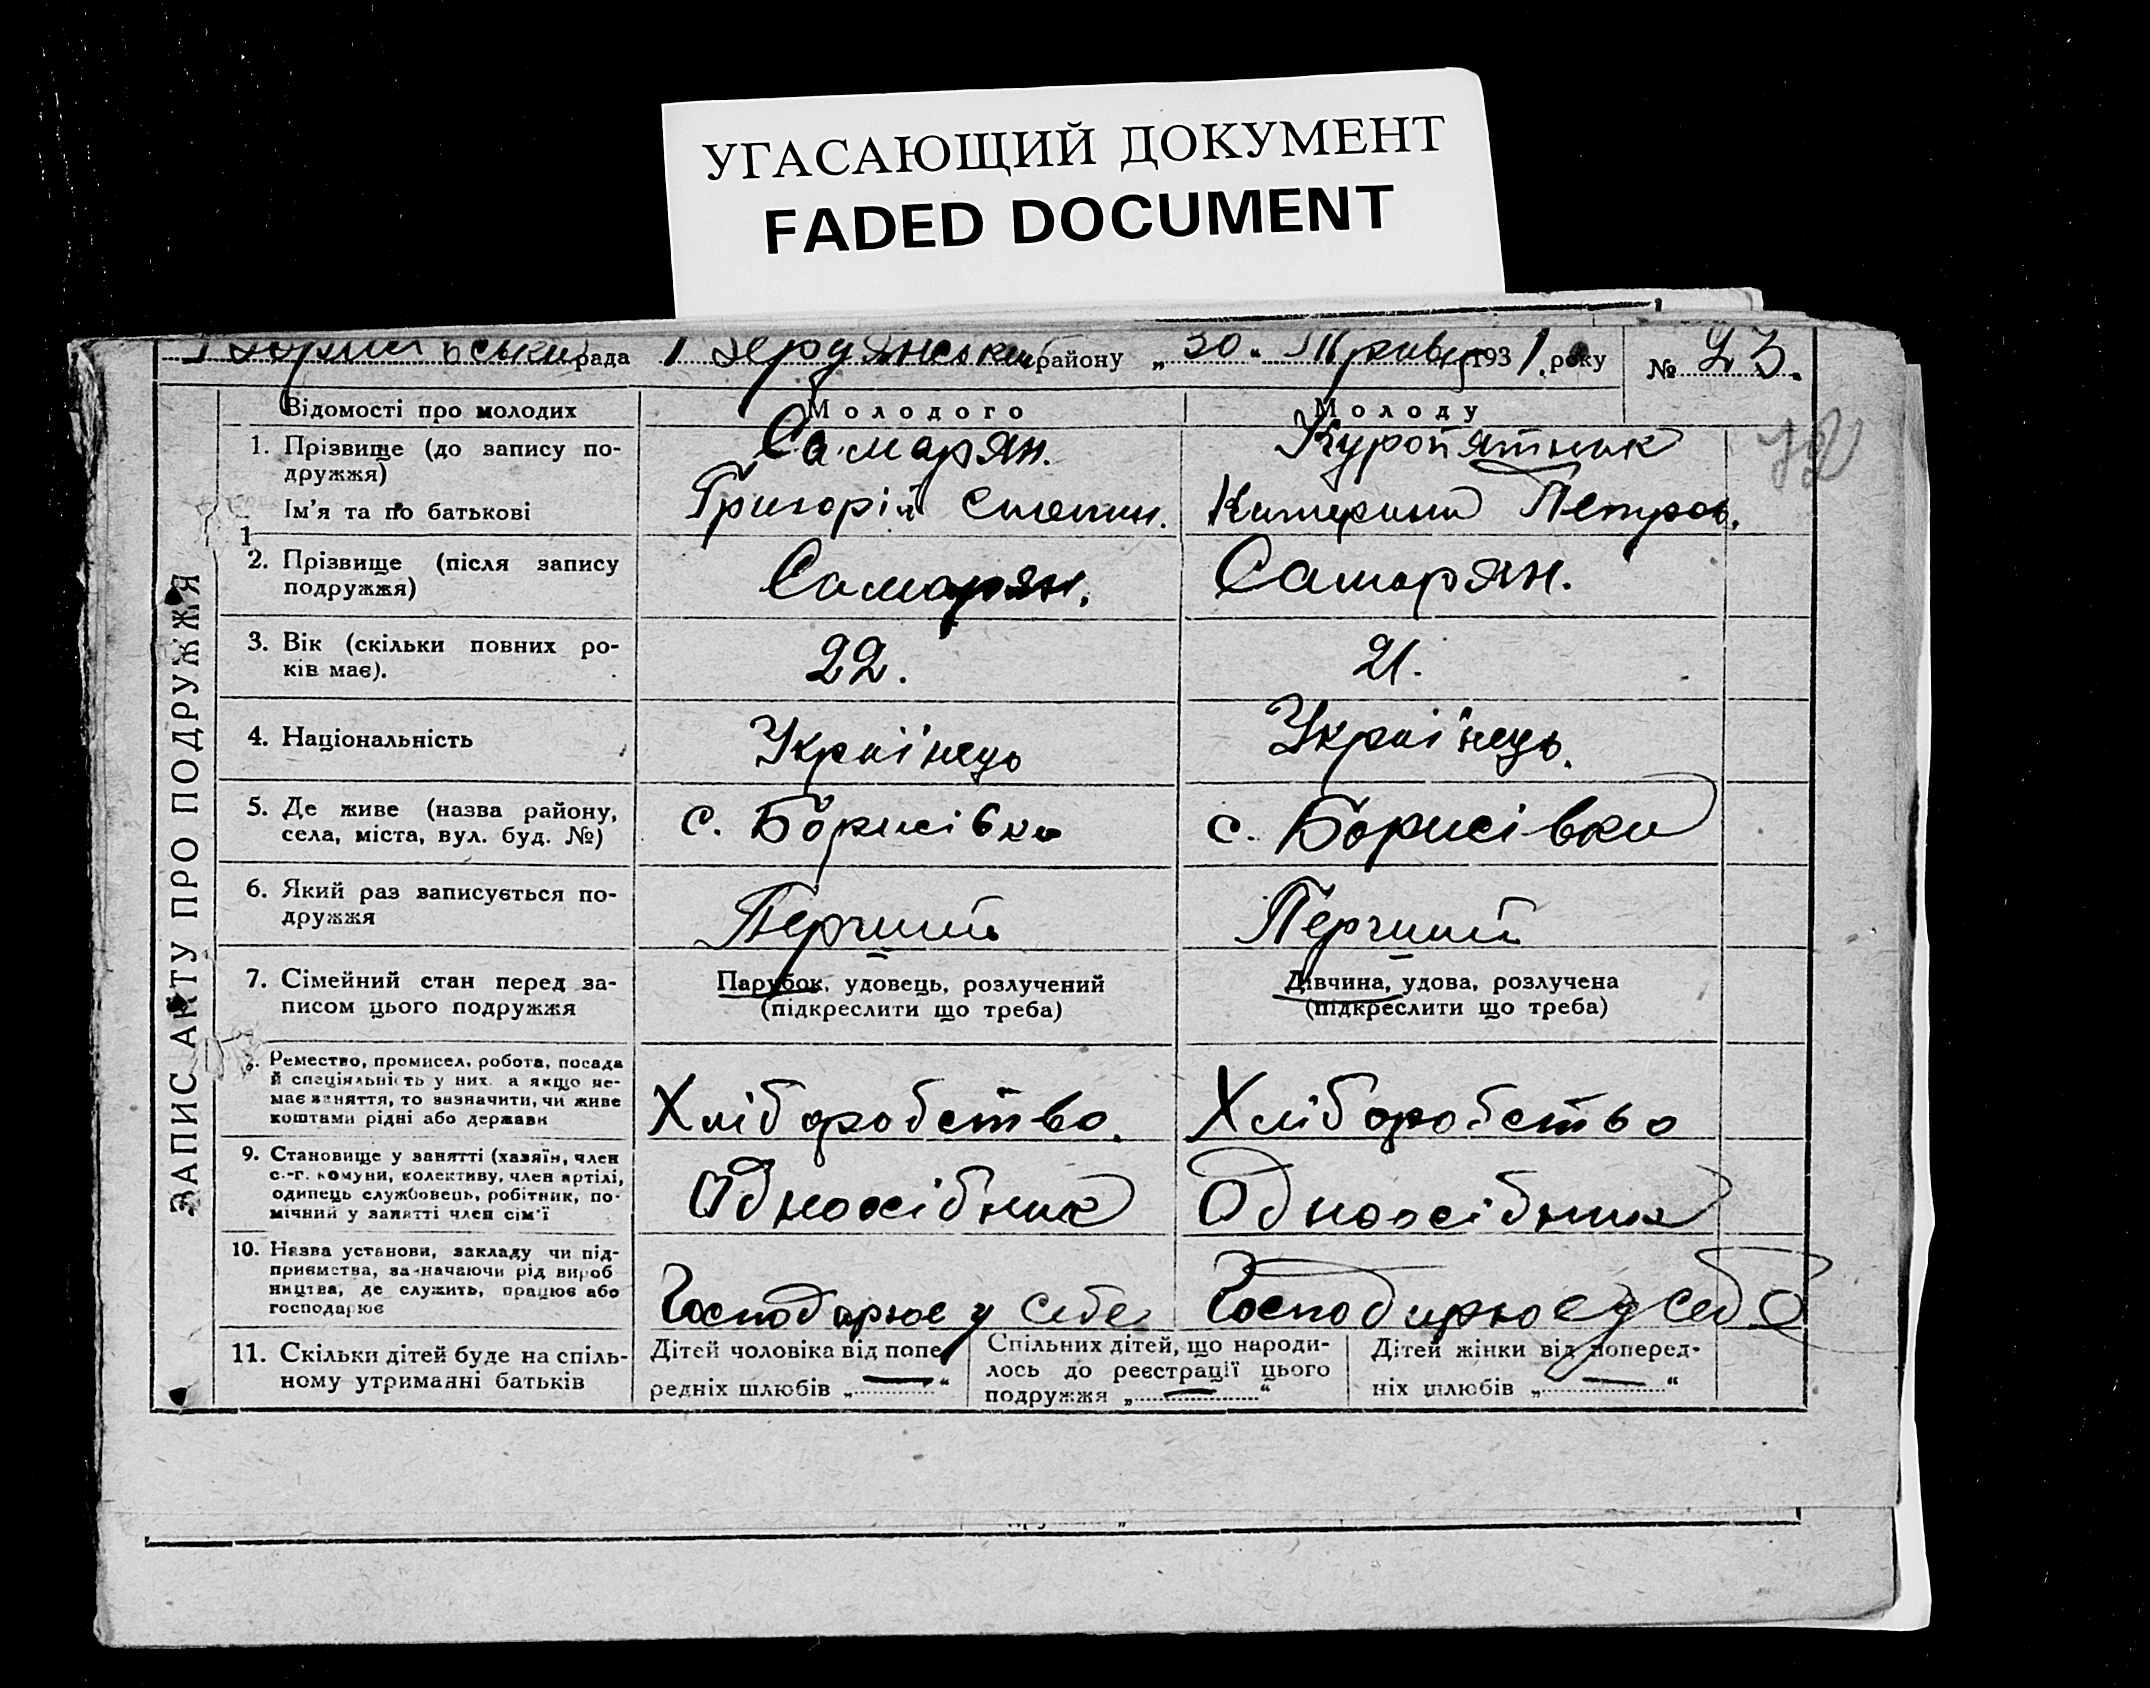 УГАСАЮЩИЙ ДОКУМЕНТ
FADED DOCUMENT
рада Бердянський району „30“ Травня 1931. року № 23.
ЗАПИС АКТУ ПРО ПОДРУЖЖЯ
Відомості про молодих Молодого Молоду
1. Прізвище (до запису по-
дружжя) Самарян. Куропятник
Ім'я та по батькові Григорій Степан. Катерина Петров.
2. Прізвище (після запису
подружжя) Самарян. Самарян.
3. Вік (скільки повних ро-
ків має). 22. 21.
4. Національність Украінець Украінець.
5. Де живе (назва району,
села, міста, вул. буд. №) с. Борисівка с. Борисівка
6. Який раз записується по-
дружжя Перчий Перчий
7. Сімейний стан перед за-
писом цього подружжя
Парубок, удовець, розлучений
(підкреслити що треба)
Дівчина, удова, розлучена
(підкреслити що треба)
Ремество, промисел, робота, посада
й спеціяльність у них, а якщо не-
має заняття, то зазначити, чи живе
коштами рідні або держави
Хліборобство. Хліборобство
9. Становище у занятті (хазяїн, член
с.-г. комуни, колективу, член артілі,
одинець службовець, робітник, по-
мічний у занятті член сім'ї
Одноосібник Одноосібник
10. Назва установи, закладу чи під-
приємства, зазначаючи рід вироб
ництва, де служить, працює або
господарює
Господарює у себе Господарює у себе
11. Скільки дітей буде на спіль-
ному утриманні батьків
Дітей чоловіка від попе
редніх шлюбів „—“
Спільних дітей, що народи-
лось до реєстрації цього
подружжя „—“
Дітей жінки від поперед-
ніх шлюбів „—“